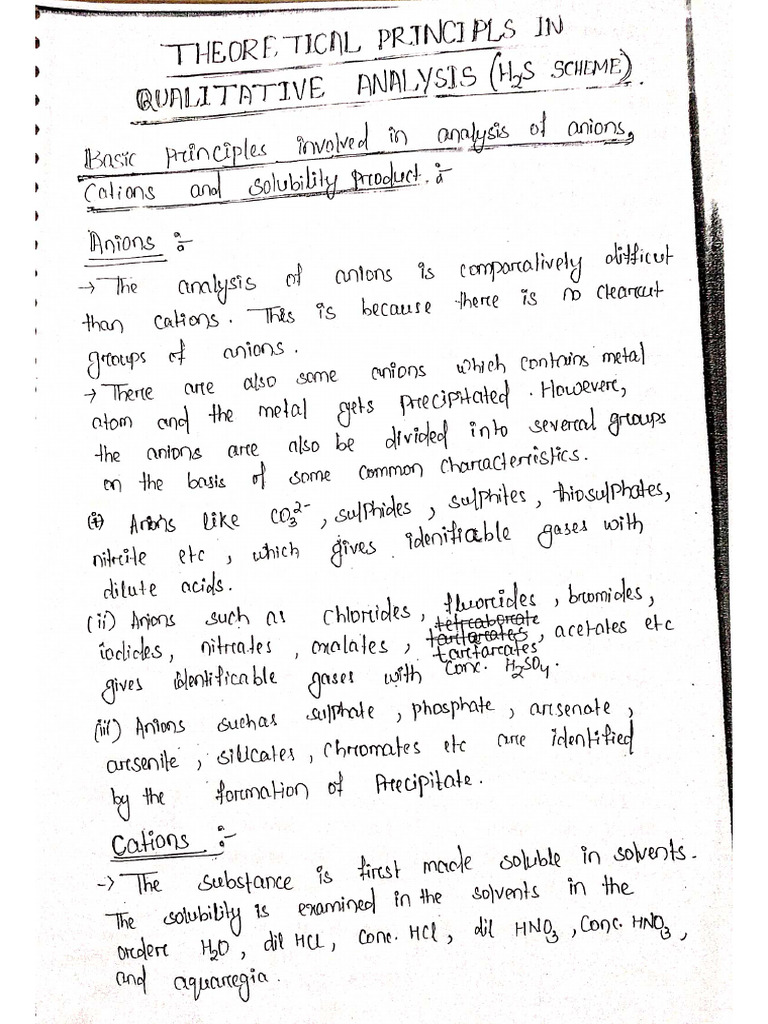 THEORETICAL PRINCIPLS IN
QUALITATIVE ANALYSIS (H₂S SCHEME).
Basic principles involved in analysis of anions,
Cations and solubility product. :-
Anions :-
→ The analysis of anions is comparatively difficut
than cations. This is because there is no clearcut
groups of anions.
→ There are also some anions which contains metal
atom and the metal gets precipitated. However,
the anions are also be divided into several groups
on the basis of some common characteristics.
(i) Anions like CO₃²⁻, sulphides, sulphites, thiosulphates,
nitrite etc, which gives idenifiable gases with
dilute acids.
(ii) Anions such as chlorides, fluorides, bromides,
iodides, nitrates, oxalates, tartarates, acetates etc
gives identificable gases with conc. H₂SO₄.
(iii) Anions suchas sulphate, phosphate, arsenate,
arsenite, silicates, chromates etc are identified
by the formation of Precipitate.
Cations :-
→ The substance is first made soluble in solvents.
The solubility is examined in the solvents in the
order H₂O, dil HCl, conc. HCl, dil HNO₃, Conc. HNO₃,
and aquaregia.